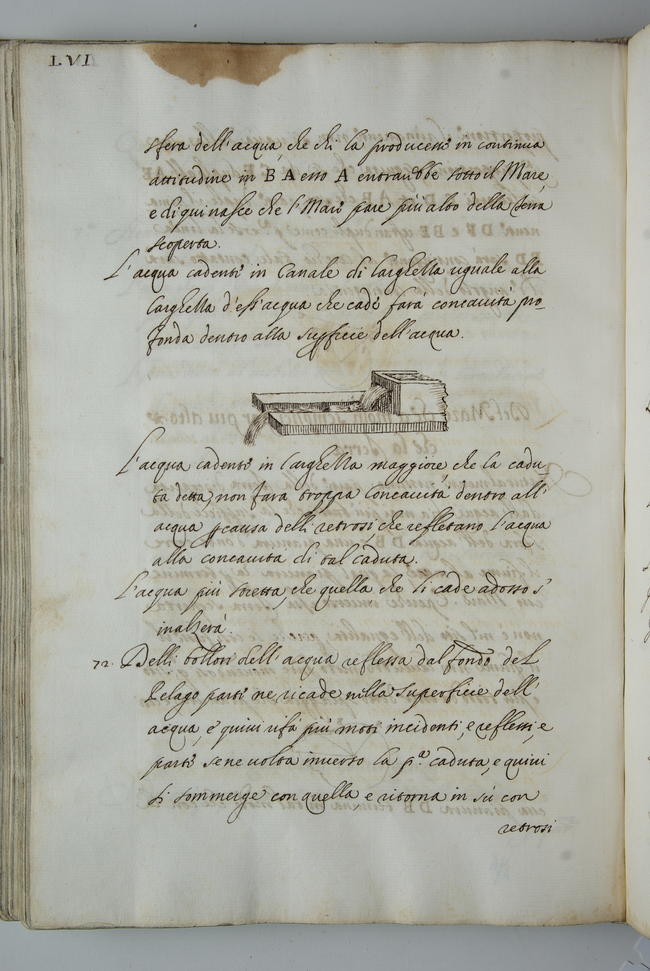 LVI
sfera dell'acqua, che chi la producessi in continua
attitudine in B A esso A entrarebbe sotto il Mare,
e di qui nasce che l'Mare pare più alto della terra
scoperta.
L'acqua cadente in Canale di larghezza uguale alla
larghezza d'essi acqua che cade farà concavità pro-
fonda dentro alla supficie dell'acqua.
L'acqua cadente in larghezza maggiore, che la cadu-
ta detta, non farà troppa concavità dentro all'
acqua p causa delli retrosi, che refletano l'acqua
alla concavità di tal caduta.
L'acqua più stretta, che quella che li cade adosso s'
inalzerà.
72. Delli bollori dell'acqua reflessa dal fondo del
Pelago parte ne ricade nella superficie dell'
acqua, e quivi rifà più moti incidenti, e reflessi, e
parte se ne volta inverso la p.ª caduta, e quivi
si sommerge con quella e ritorna in sù con
retrosi